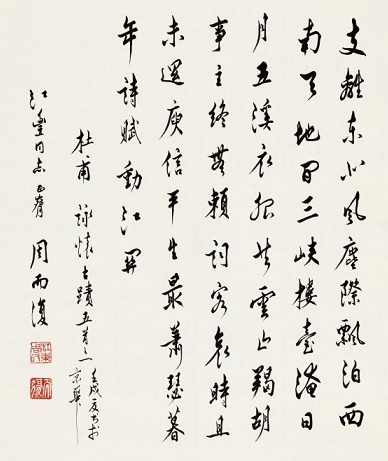 支離東北風塵際飄泊西
南天地間三峽樓臺淹日
月五溪衣服共雲山羯胡
事主終無賴詞客哀時且
未還庾信平生最蕭瑟暮
年詩賦動江關
杜甫 詠懷古蹟五首之一 壬戌夏書於
京華
江豐同志正 周而復